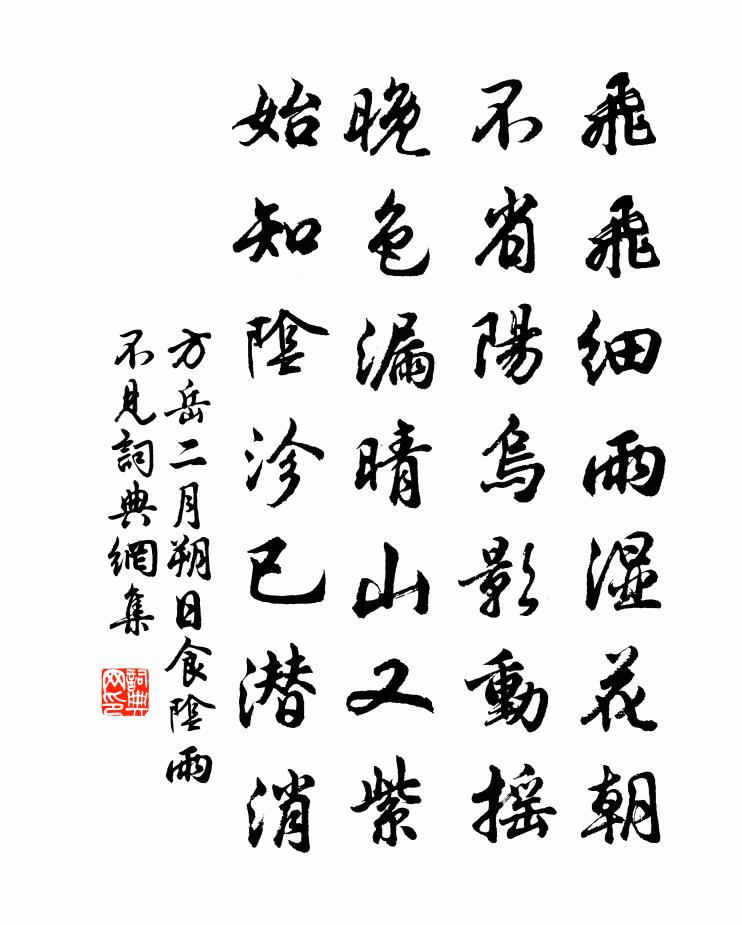 飛飛細雨湿花朝
不省陽烏影動摇
晚色漏晴山又紫
始知陰沴已潜消
方岳二月朔日食陰雨
不見詞典網集
詞典
网印